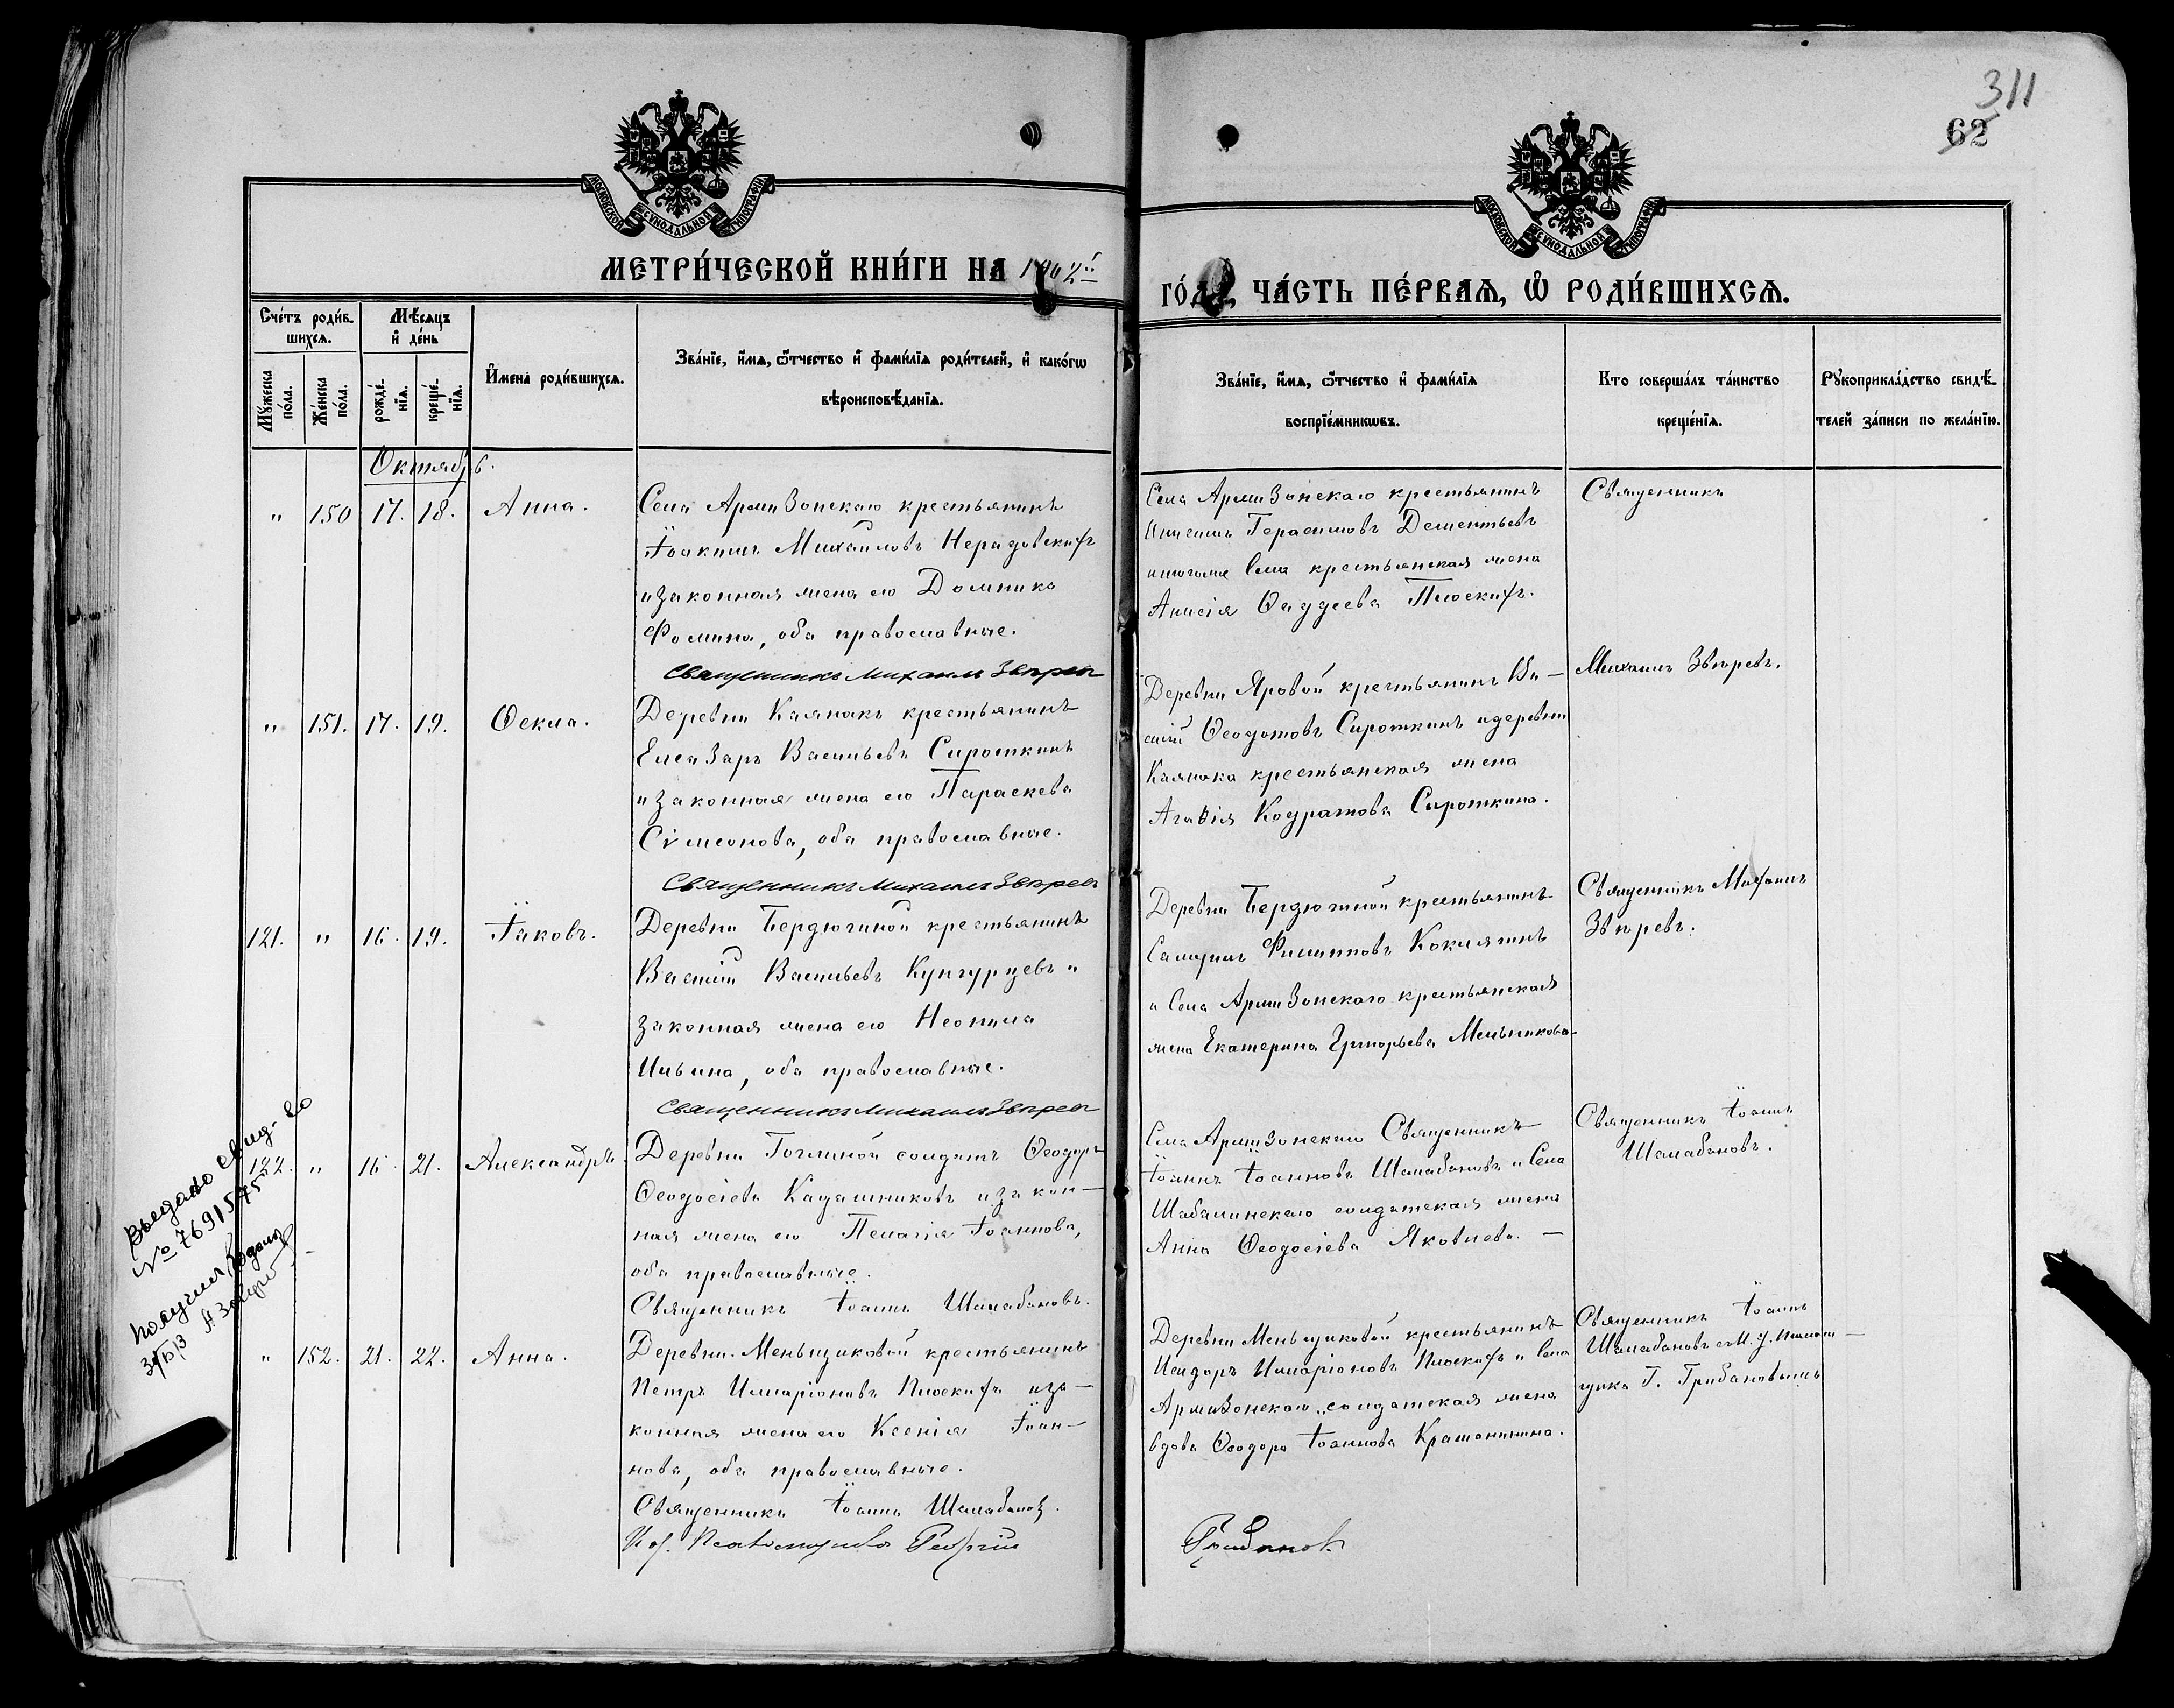 311
62
МОСКОВСКОЙ СѴНОДАЛЬНОЙ ТИПОГРАФІИ
МОСКОВСКОЙ СѴНОДАЛЬНОЙ ТИПОГРАФІИ
МЕТРИ́ЧЕСКОЙ КНИ́ГИ НА 1902й
ГО́ДЪ, ЧА́СТЬ ПЕ́РВАЯ, Ѡ҆ РОДИ́ВШИХСЯ.
Сче́тъ роди́в-
шихся.
Мѣ́сяцъ
и҆ де́нь
Мꙋ́жеска
по́ла.
Же́нска
по́ла.
рожде́-
нїѧ.
креще́-
нїѧ.
И҆мена̀ роди́вшихсѧ.
Зва́нїе, и҆́мѧ, ѻ҆́тчество и҆ фамѝлїѧ роди́телей, и҆ како́гѡ
вѣроисповѣ́данїѧ.
Зва́нїе, и҆́мѧ, ѻ҆́тчество и҆ фамѝлїѧ
воспрїе́мникѡвъ.
Кто соверша́лъ та́инство
креще́нїѧ.
Рꙋкоприкла́дство свидѣ́-
телей за́писи по жела́нїю.
Октябрь.
" 150 17. 18. Анна.
Села Армизонскаго крестьянинъ
Іоакимъ Михаиловъ Нерадовскихъ
и законная жена его Домника
Фомина, оба православные.
Священникъ Михаилъ Звѣревъ
Села Армизонскаго крестьянинъ
Герасимовъ Дементьевъ
и тогоже села крестьянская жена
Анисія Ѳаддеева Плоскихъ.
Священникъ
Михаилъ Звѣревъ.
" 151. 17. 19. Ѳекла.
Деревни Калмакъ крестьянинъ
Елеазаръ Васильевъ Сироткинъ
и законная жена его Параскева
Сімеонова, оба православные.
Священникъ Михаилъ Звѣревъ
Деревни Яровой крестьянинъ Ва-
силій Ѳеодотовъ Сироткинъ и деревни
Калмака крестьянская жена
Агафія Кодратова Сироткина.
121. " 16. 19. Іаковъ.
Деревни Бердюгиной крестьянинъ
Василій Васильевъ Кунгурцевъ и
законная жена его Неонила
Ильина, оба православные.
Священникъ Михаилъ Звѣревъ
Деревни Бердюгиной крестьянинъ
Самуилъ Филипповъ Коклягинъ
и Села Армизонскаго крестьянская
жена Екатерина Григорьева Мельникова
Священникъ Михаилъ
Звѣревъ.
122. " 16. 21. Александръ.
Деревни Гоглиной солдатъ Ѳеодоръ
Ѳеодосіевъ Кадашниковъ и закон-
ная жена его Пелагія Іоаннова,
оба православные.
Священникъ Іоаннъ Шалабановъ.
Села Армизонскаго Священникъ
Іоаннъ Іоанновъ Шалабановъ и Села
Шабалинскаго солдатская жена
Анна Ѳеодосіева Яковлева. —
Священникъ Іоаннъ
Шалабановъ.
" 152. 21. 22. Анна.
Деревни Меньщиковой крестьянинъ
Петръ Иларіоновъ Плоскихъ и за-
конная жена его Ксенія Іоан-
нова, оба православные.
Священникъ Іоаннъ Шалабановъ.
Деревни Меньщиковой крестьянинъ
Исидоръ Иларіоновъ Плоскихъ и села
Армизонскаго солдатская жена
вдова Ѳеодора Іоаннова Крашанинина.
Священникъ Іоаннъ
Шалабановъ съ И. д. Псалом-
щика Г. Грибановымъ
И. д. Псаломщика Георгій
Грибановъ
Выдано свид-во
№ 7691575